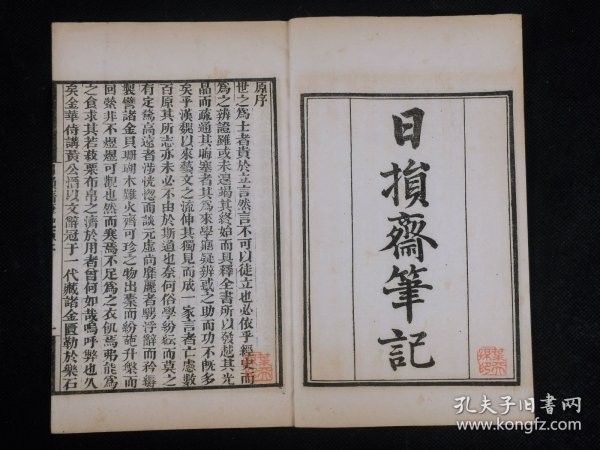 日損齋筆記
原序
世之爲士者貴於立言然言不可以徒立也必依乎經史而
爲之辨證雖或未還揭其終始而具釋全書所以發越其光
晶而疏通其晦塞者其爲來學磨疑辨惑之助而功不旣多
矣乎漢魏以來藝文之流伸其獨見而成一家言者亡慮數
百原其所志亦未必不由於斯道也奈何俗學紛紜而莫之
有定統高遠者涉恍惚而談元虛尚靡麗者騁浮辭而矜
製譬諸金貝珊瑚木難火齊可珍之物出橐而紛葩升槃而
回縈非不煜煜可觀也然而寒焉不足爲之衣飢焉弗能爲
之食求其若菽粟布帛之濟於用者曾何如哉嗚呼弊也久
矣金華侍講黃公溍以文辭冠于一代藏諸金匱勒於樂石
孔夫子旧書网
www.kongfz.com